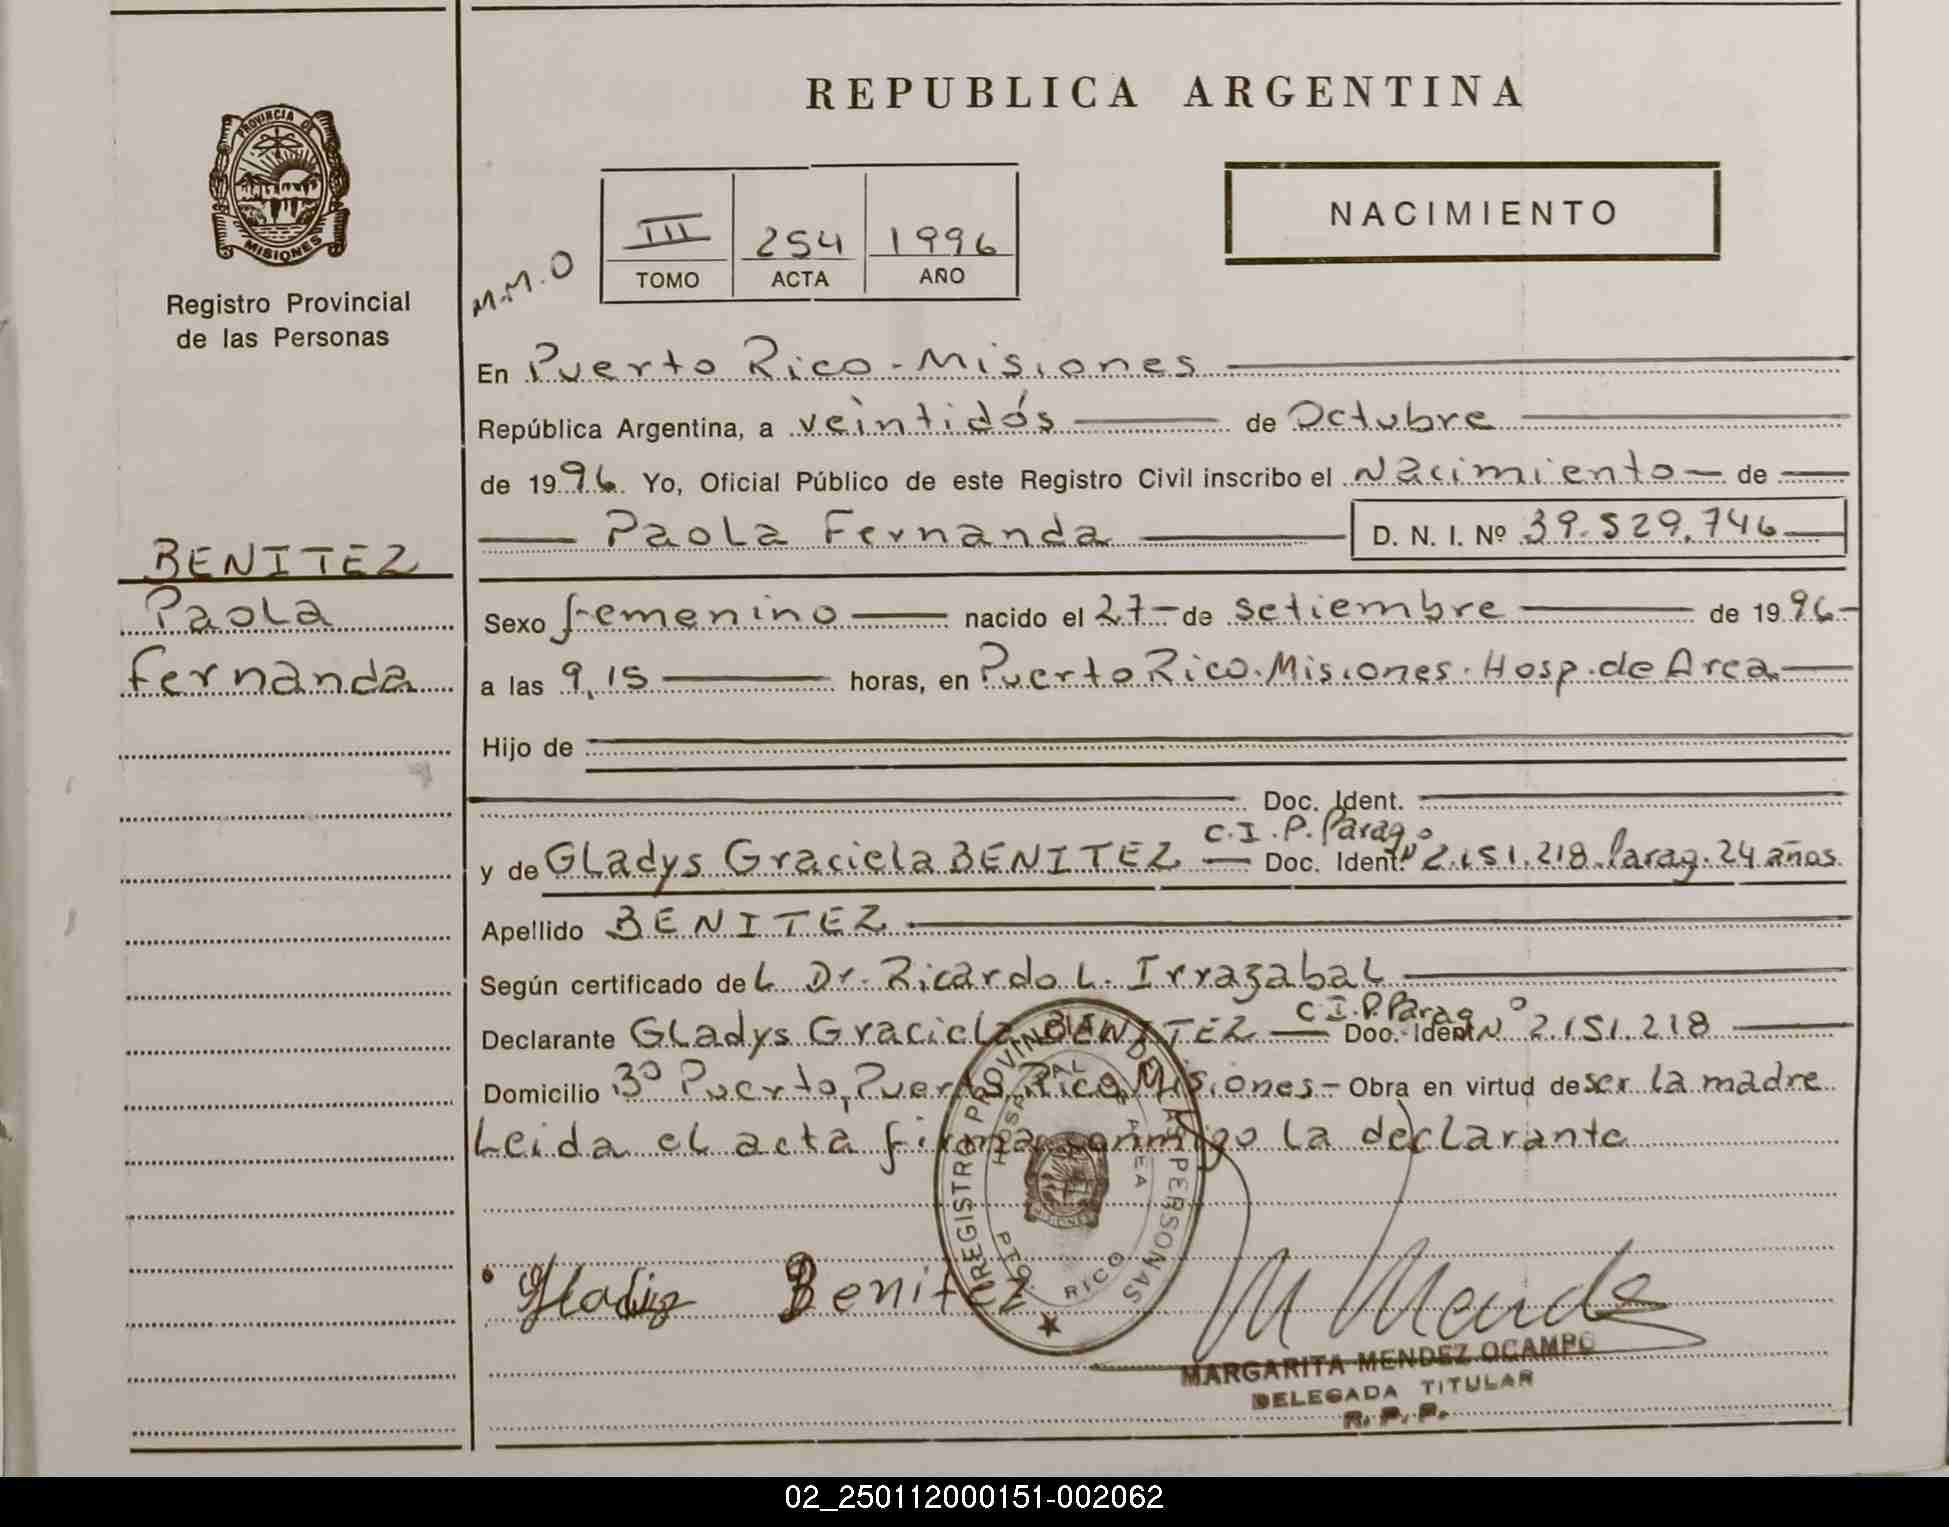 REPUBLICA ARGENTINA
PROVINCIA DE
MISIONES
Registro Provincial
de las Personas
NACIMIENTO
M.M.O
III 254 1996
TOMO ACTA AÑO
En Puerto Rico - Misiones
República Argentina, a veintidós de Octubre
de 1996 Yo, Oficial Público de este Registro Civil inscribo el Nacimiento de
Paola Fernanda D. N. I. Nº 39.529.746
BENITEZ
Paola
Fernanda
Sexo femenino nacido el 27 de setiembre de 1996
a las 9,15 horas, en Puerto Rico. Misiones. Hosp. de Area
Hijo de
Doc. Ident.
C.I.P. Parag
y de Gladys Graciela BENITEZ Doc. Ident. Nº 2.151.218 Parag. 24 años
Apellido BENITEZ
Según certificado del Dr. Ricardo L. Irrazabal
C.I.P. Parag
Declarante Gladys Graciela BENITEZ Doc. Ident Nº 2.151.218
Domicilio 3º Puerto, Puerto Rico, Misiones - Obra en virtud de ser la madre
Leida el acta firma conmigo la declarante
REGISTRO PROVINCIAL DE LAS PERSONAS
HOSPITAL DE AREA
PTO. RICO
Gladiz Benitez
M Mendez
MARGARITA MENDEZ OCAMPO
DELEGADA TITULAR
R. P. P.
02_250112000151-002062